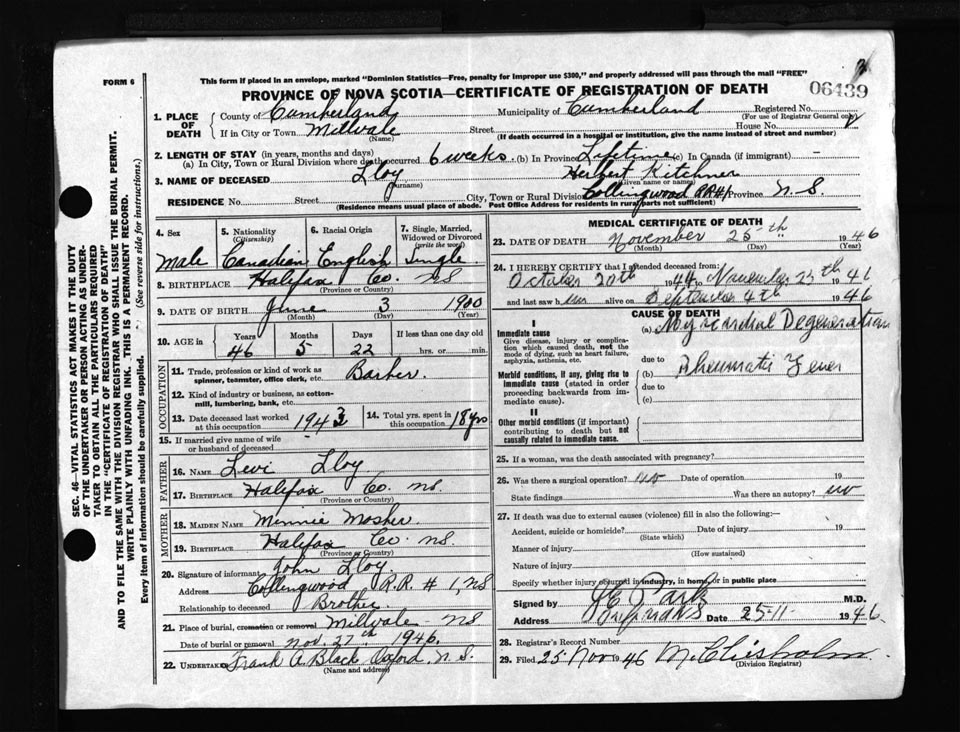 FORM 6
This form if placed in an envelope, marked "Dominion Statistics—Free, penalty for improper use $300," and properly addressed will pass through the mail "FREE"
PROVINCE OF NOVA SCOTIA—CERTIFICATE OF REGISTRATION OF DEATH
06439
SEC. 46—VITAL STATISTICS ACT MAKES IT THE DUTY
OF THE UNDERTAKER OR PERSON ACTING AS UNDER-
TAKER TO OBTAIN ALL THE PARTICULARS REQUIRED
IN THE "CERTIFICATE OF REGISTRATION OF DEATH"
AND TO FILE THE SAME WITH THE DIVISION REGISTRAR WHO SHALL ISSUE THE BURIAL PERMIT.
WRITE PLAINLY WITH UNFADING INK. THIS IS A PERMANENT RECORD.
Every item of information should be carefully supplied. (See reverse side for instructions.)
1. PLACE OF DEATH
County of Cumberland Municipality of Cumberland Registered No.
(For use of Registrar General only)
If in City or Town Millvale Street House No.
(Name) (If death occurred in a hospital or institution, give the name instead of street and number)
2. LENGTH OF STAY (in years, months and days)
(a) In City, Town or Rural Division where death occurred 6 weeks. (b) In Province Lifetime (c) In Canada (if immigrant) —
3. NAME OF DECEASED Lloy Herbert Kitchner
(Surname) (Given name or names)
RESIDENCE No. Street City, Town or Rural Division Collingwood RR#1 Province N.S.
(Residence means usual place of abode. Post Office Address for residents in rural parts not sufficient)
4. Sex 5. Nationality (Citizenship) 6. Racial Origin 7. Single, Married, Widowed or Divorced (write the word)
Male Canadian English Single
8. BIRTHPLACE Halifax Co. NS
(Province or Country)
9. DATE OF BIRTH June 3 1900
(Month) (Day) (Year)
10. AGE in Years Months Days If less than one day old
46 5 22 hrs. or min.
OCCUPATION
11. Trade, profession or kind of work as Barber.
spinner, teamster, office clerk, etc.
12. Kind of industry or business, as cotton-
mill, lumbering, bank, etc.
13. Date deceased last worked at this occupation 1943
14. Total yrs. spent in this occupation 18 yrs
15. If married give name of wife
or husband of deceased
FATHER
16. NAME Levi Lloy
17. BIRTHPLACE Halifax Co. NS.
(Province or Country)
MOTHER
18. MAIDEN NAME Minnie Mosher
19. BIRTHPLACE Halifax Co. NS.
(Province or Country)
20. Signature of informant John Lloy.
Address Collingwood R.R. # 1, NS
Relationship to deceased Brother
21. Place of burial, cremation or removal Millvale NS
Date of burial or removal Nov. 27th 1946.
22. UNDERTAKER Frank A. Black Oxford, N.S.
(Name and address)
MEDICAL CERTIFICATE OF DEATH
23. DATE OF DEATH November 25th 1946
(Month) (Day) (Year)
24. I HEREBY CERTIFY that I attended deceased from:
October 20th 1944 to November 25th 1946
and last saw him alive on September 4th 1946
CAUSE OF DEATH
I
Immediate cause
Give disease, injury or complica-
tion which caused death, not the
mode of dying, such as heart failure,
asphyxia, asthenia, etc.
(a) Myocardial Degeneration
due to
Morbid conditions, if any, giving rise to
immediate cause (stated in order
proceeding backwards from im-
mediate cause).
(b) Rheumatic Fever
due to
(c)
II
Other morbid conditions (if important)
contributing to death but not
causally related to immediate cause.
25. If a woman, was the death associated with pregnancy?
26. Was there a surgical operation? no Date of operation 19
State findings Was there an autopsy? no
27. If death was due to external causes (violence) fill in also the following:—
Accident, suicide or homicide? Date of injury 19
(State which)
Manner of injury
(How sustained)
Nature of injury
Specify whether injury occurred in industry, in home, or in public place
Signed by M.D.
Address Date 25-11- 1946.
28. Registrar's Record Number
29. Filed 25 Nov 1946 M. Chisholm.
(Division Registrar)